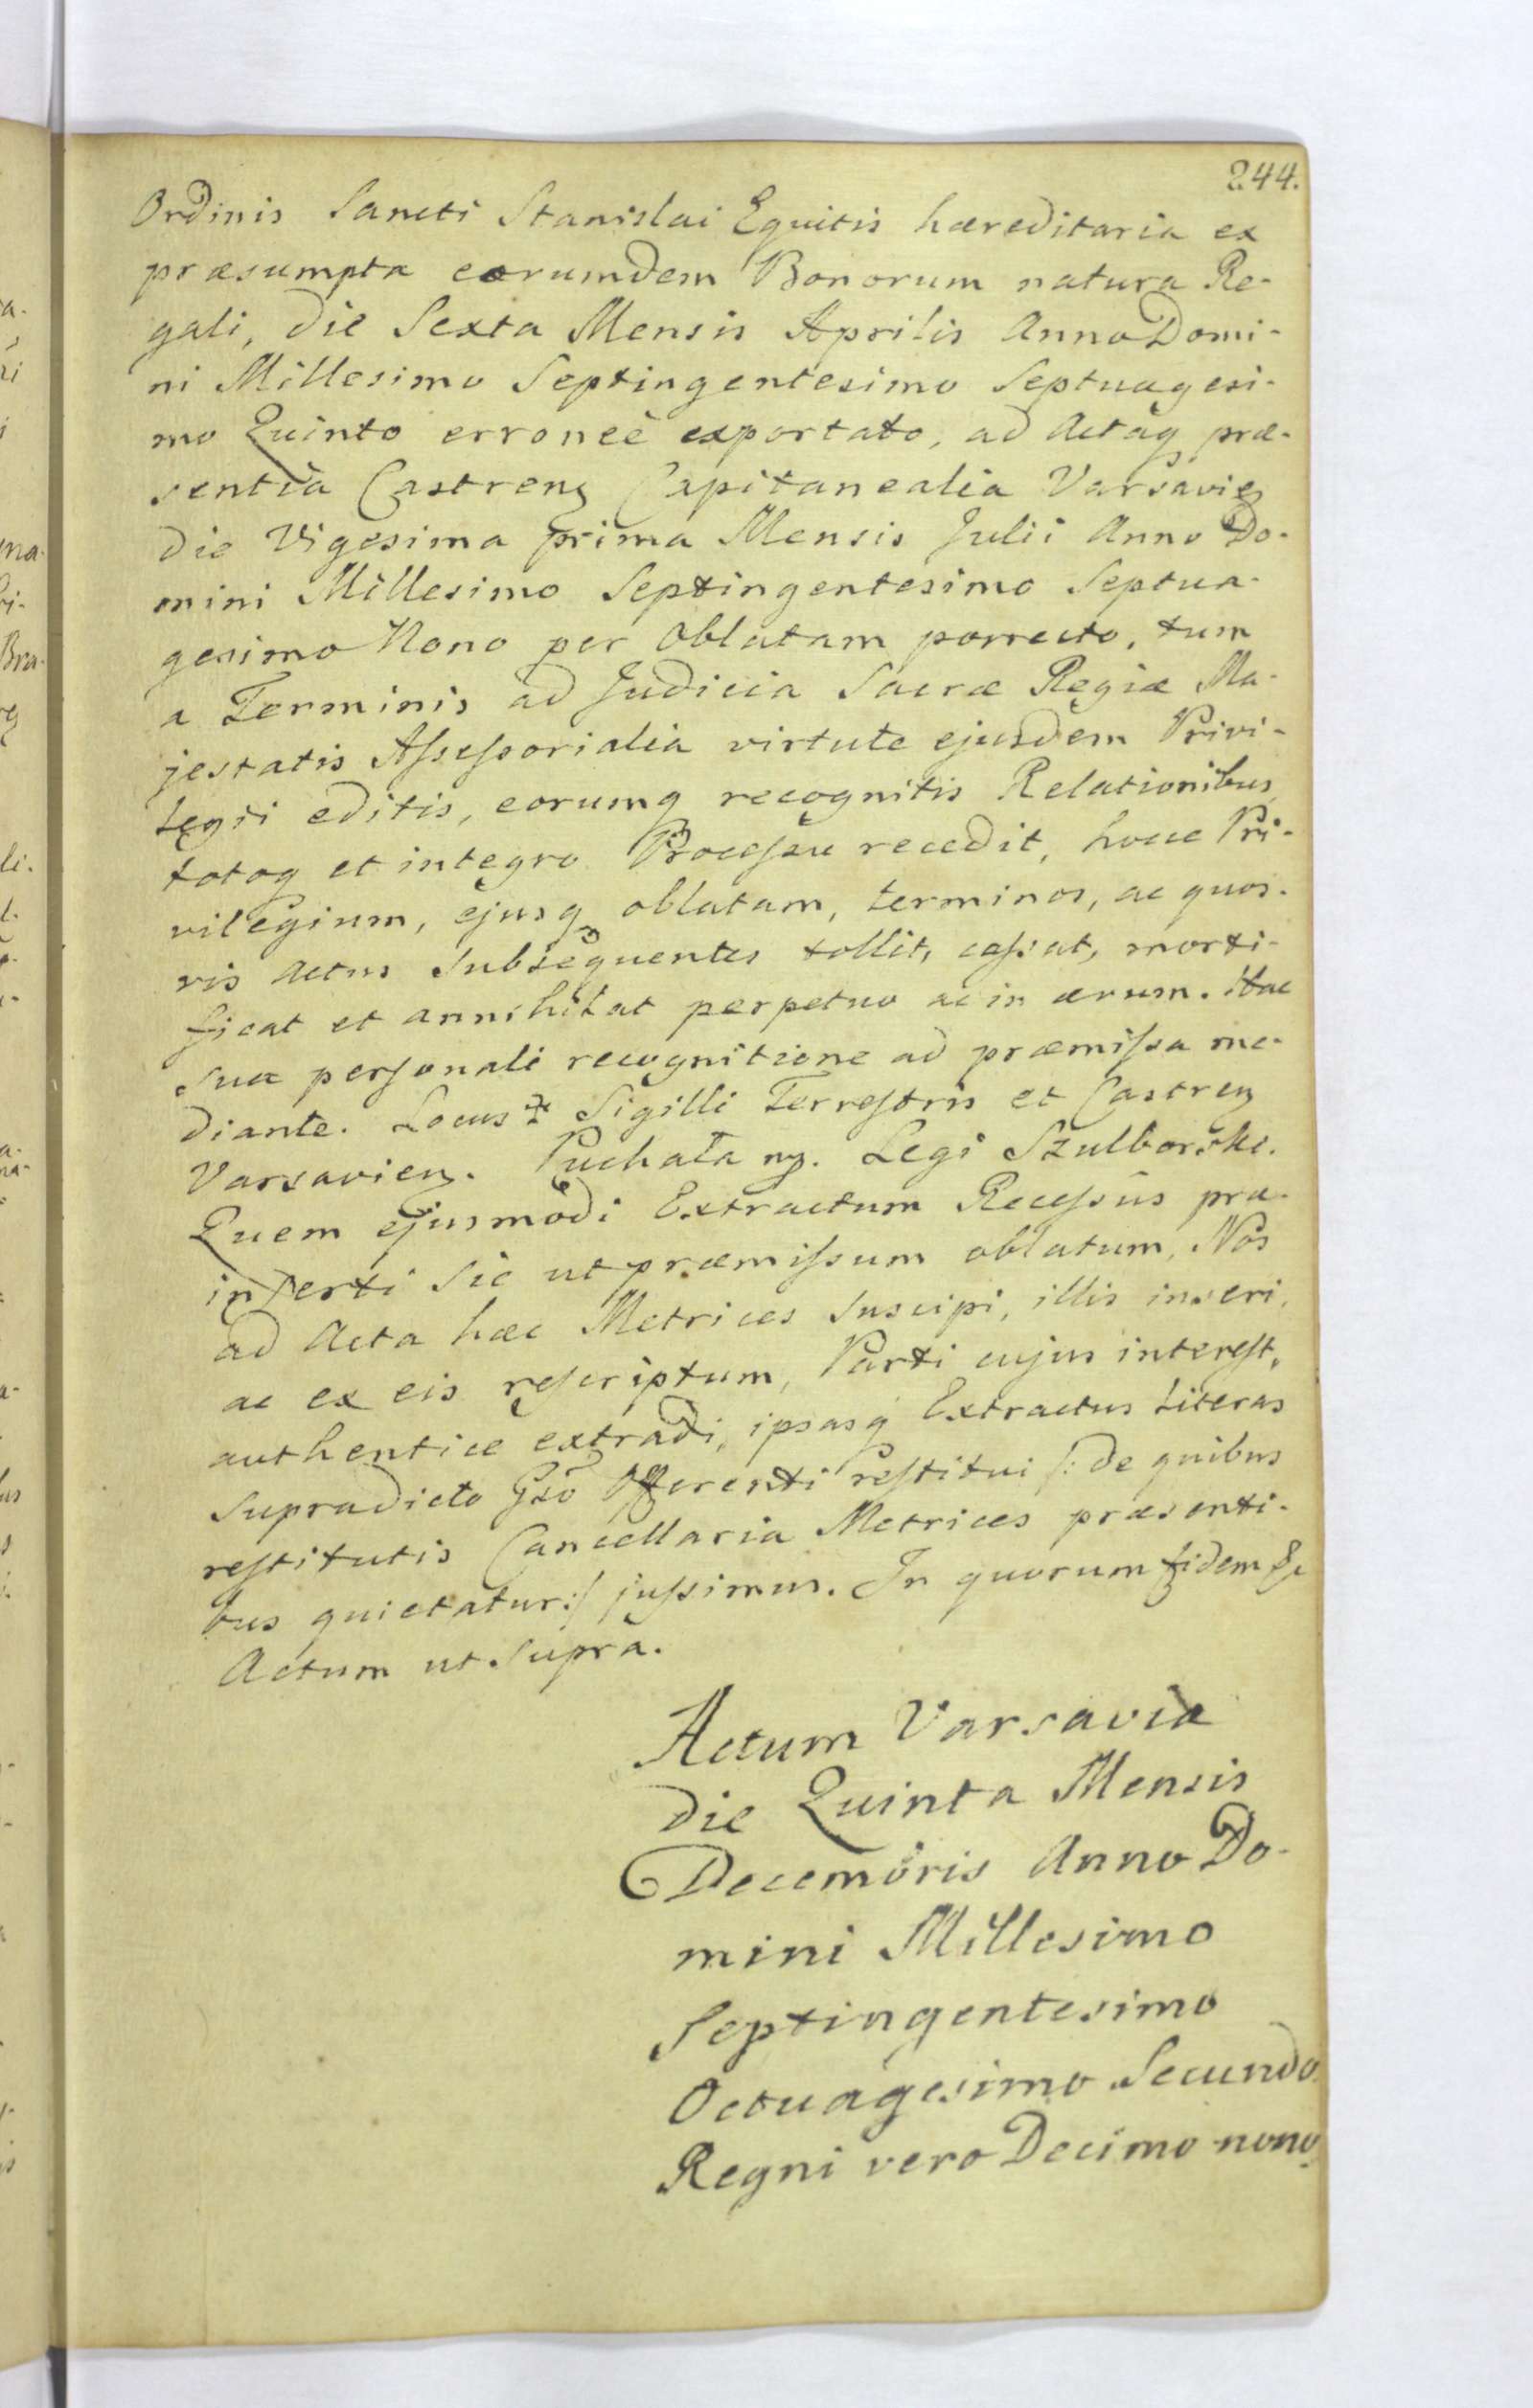 244.
Ordinis Sancti Stanislai Equitis hæreditaria ex
præsumpta eorumdem Bonorum natura Re-
gali, die Sexta Mensis Aprilis Anno Domi-
ni Millesimo Septingentesimo Septuagesi-
mo Quinto erroneè exportato, ad Actaq præ-
sentia Castrenz Capitanealia Varsavienz
die Vigesima prima Mensis Julii Anno Do-
mini Millesimo Septingentesimo Septua-
gesimo Nono per Oblatam porrecto, tum
a Terminis ad Judicia Sacræ Regiæ Ma-
jestatis Aſseſsorialia virtute ejusdem Privi-
legii editis, eorumq recognitis Relationibus,
totoq et integro Proceſsu recedit, hocce Pri-
vilegium, ejusq oblatam, terminos, ac quos-
vis Actus Subsequentes tollit, caſsat, morti-
ficat et annihilat perpetuo ac in ævum. Hac
Sua perſonali recognitione ad præmiſsa me-
diante. Locus Sigilli Terreſtris et Castrenz
Varsavienz. Puchała mp. Legi Szulborski.
Quem ejusmodi Extractum Receſsus præ-
inserti Sic ut præmiſsum oblatum, Nos
ad Acta hæc Metrices Suscipi, illis inseri,
ac ex eis reſcriptum, Parti cujus intereſt,
authentice extradi, ipsasq Extractus Literas
Supradicto Gso Offerenti reſtitui /: de quibus
reſtitutis Cancellaria Metrices præsenti-
bus quietatur :/ juſsimus. In quorum fidem &c
Actum ut Supra.
Actum Varsavia
die Quinta Mensis
Decembris Anno Do-
mini Millesimo
Septingentesimo
Octuagesimo Secundo
Regni vero Decimo nono